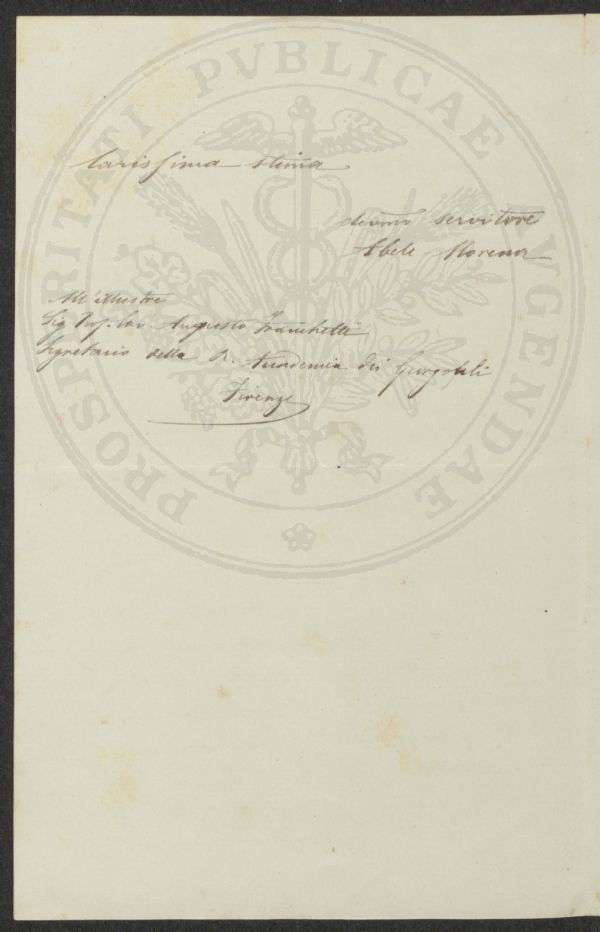 PROSPERITATI PVBLICAE AVGENDAE
larissima stima
devmo servitore
Abele Morena
All' illustre
Sig Prof. Cav. Augusto Franchetti
Segretario della R. Accademia dei Georgofili
Firenze